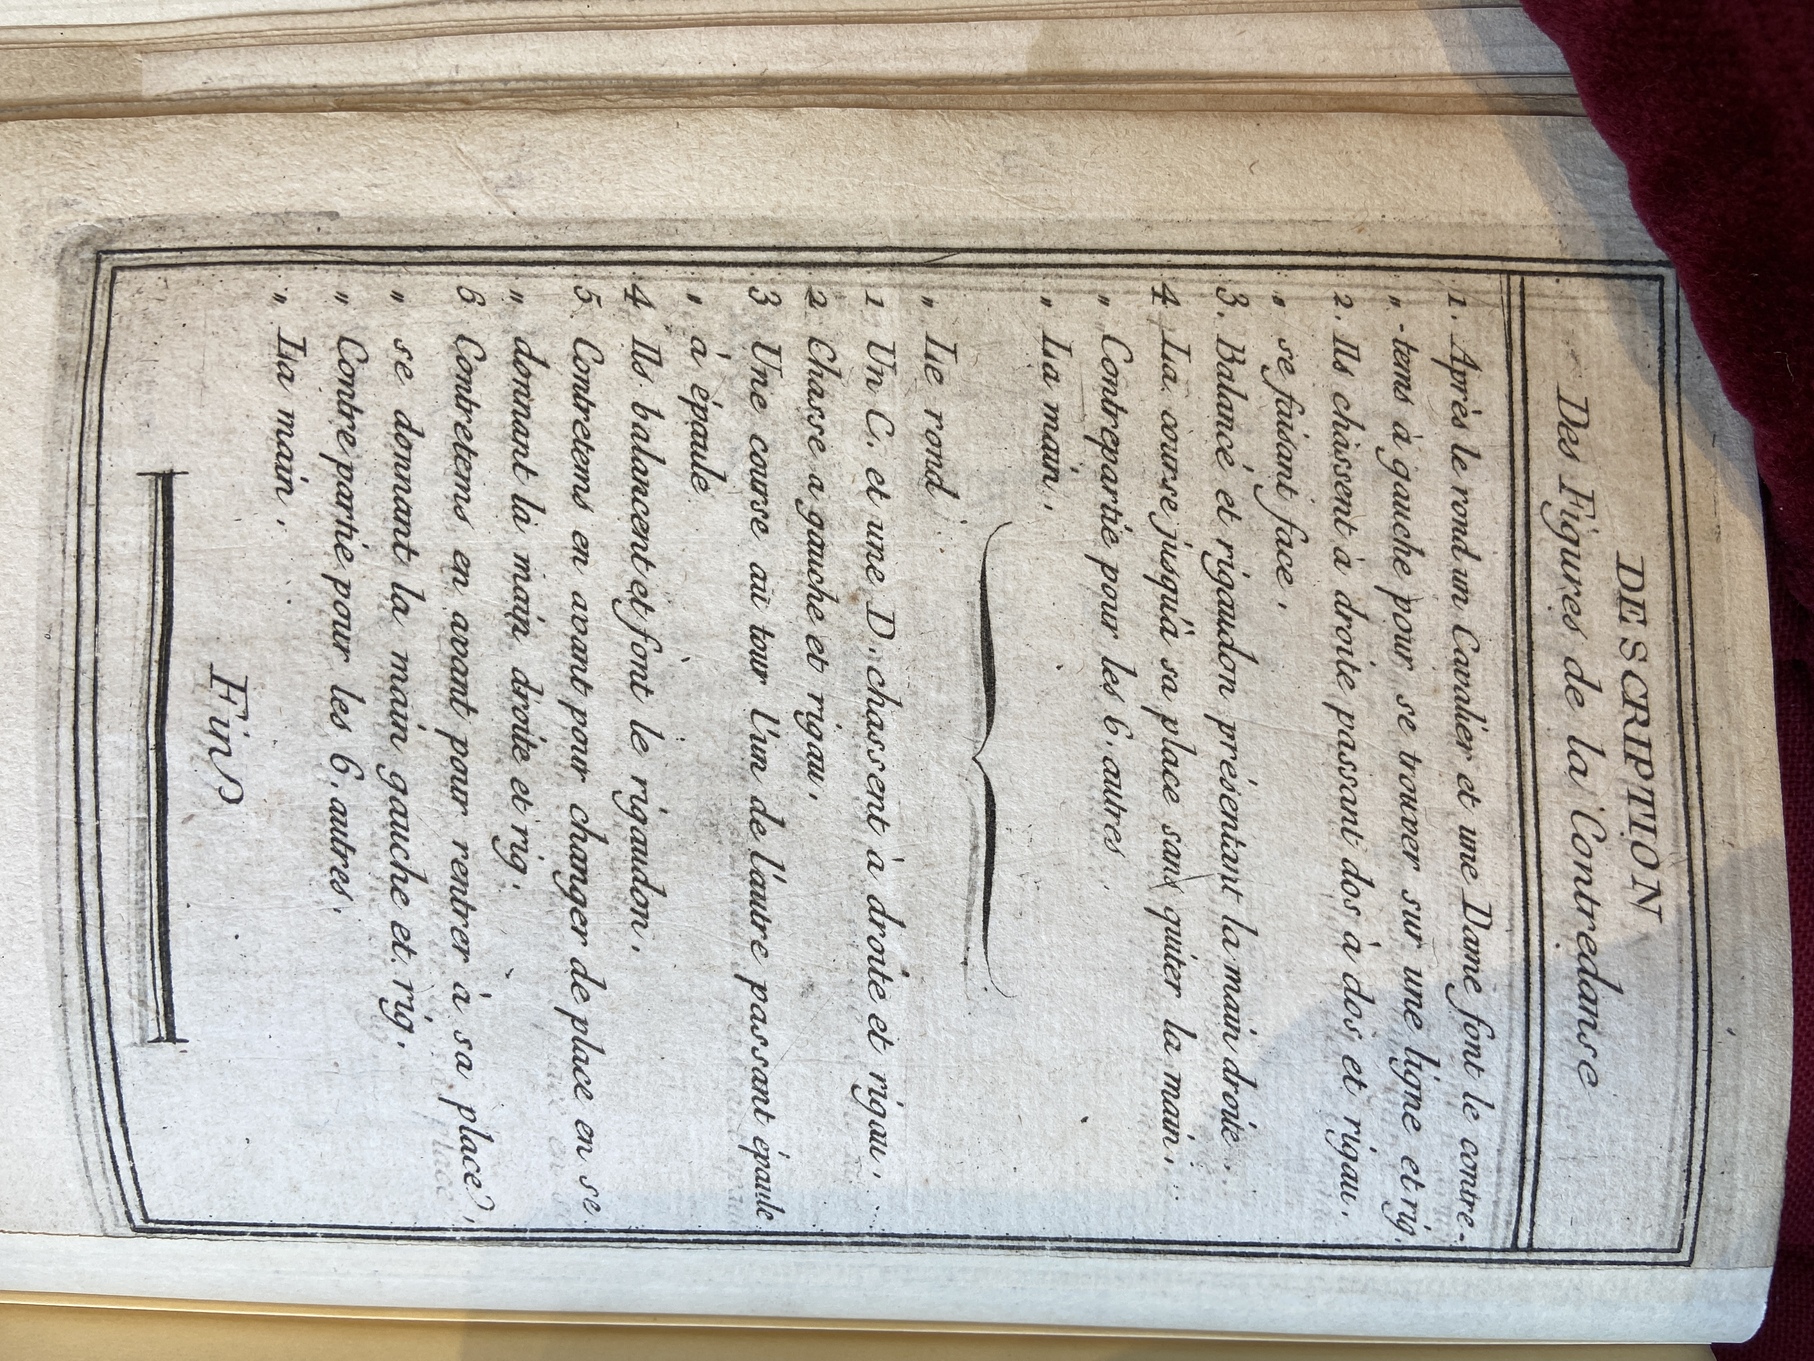 DESCRIPTION
Des Figures de la Contredanse
1. Après le rond un Cavalier et une Dame font le contre-
„ -tems à gauche pour se trouver sur une ligne et rig.
2. Ils chassent à droite passant dos à dos et rigau.
„ se faisant face.
3. Balancé et rigaudon présentant la main droite.
4 La course jusqu'à sa place sans quiter la main.
„ Contrepartie pour les 6. autres.
„ La main.
„ Le rond
1 Un C. et une D. chassent à droite et rigau.
2 Chasse a gauche et rigau.
3 Une course au tour l'un de l'autre passant épaule
„ à épaule
4 Ils balancent et font le rigaudon.
5 Contretems en avant pour changer de place en se
„ donnant la main droite et rig.
6 Contretems en avant pour rentrer à sa place,
„ se donnant la main gauche et rig.
„ Contrepartie pour les 6. autres.
„ La main.
Fins